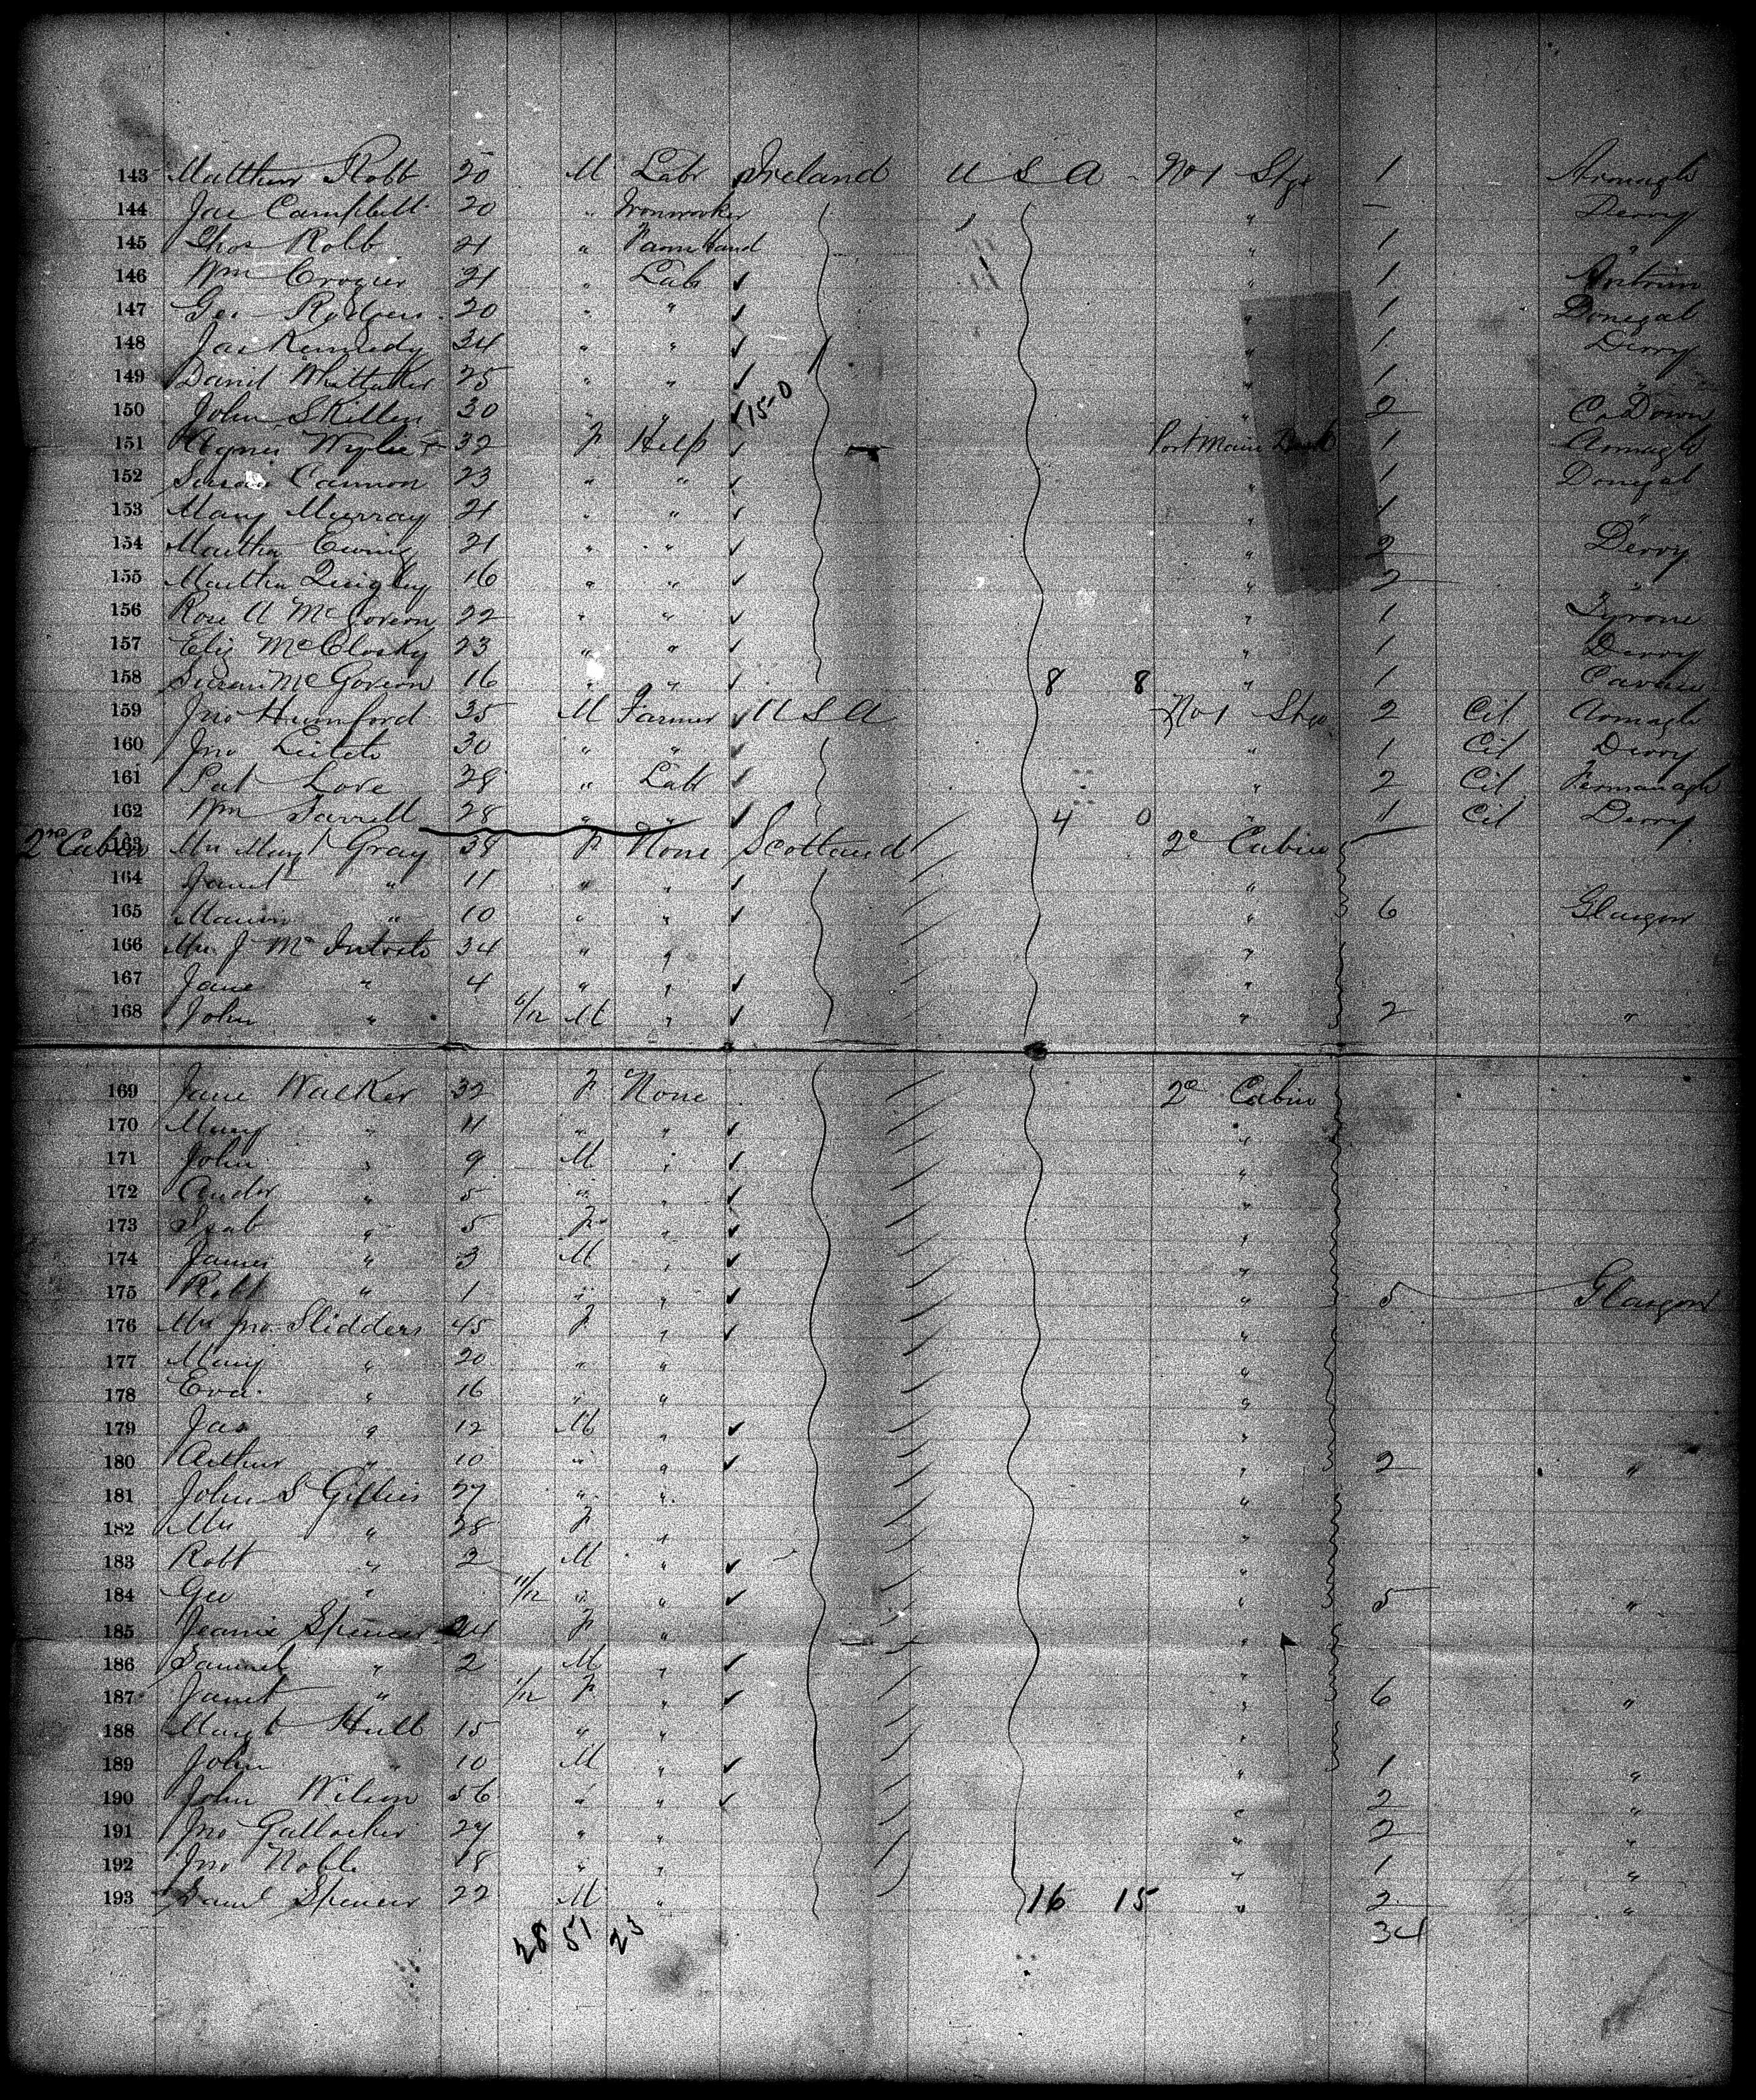 143 Matthew Robb 20 M Labr Ireland U S A No 1 Stge 1 Armagh
144 Jas Campbell 20 " Ironworker " - Derry
145 Thos Robb 21 " Farm Hand " 1 "
146 Wm Crozier 21 " Lab " 1 Antrim
147 Geo Rodgers 20 " " " 1 Donegal
148 Jas Kennedy 34 " " " 1 Derry
149 David Whittaker 25 " " " 1 "
150 John Skillen 30 " " 15-0 " 2 Co Down
151 Agnes Wylie 32 F Help Port Main Deck 1 Armagh
152 Cannon 23 " " " 1 Donegal
153 Mary Murray 21 " " " 1 "
154 Martha Ewing 21 " " " 2 Derry
155 Martha Quigley 16 " " " 2 "
156 Rose A McGovern 22 " " " 1 Tyrone
157 Eliz McClosky 23 " " " 1 Derry
158 Susan McGovern 16 " " 8 8 " 1 Cavan
159 Jno 35 M Farmer U S A No 1 Stge 2 Cit Armagh
160 Jno 30 " " " 1 Cit Derry
161 Pat Love 28 " Lab " 2 Cit Fermanagh
162 Wm Farrell 28 " " 4 0 " 1 Cit Derry
2nd Cabin 163 Mrs Margt Gray 38 F None Scotland 2e Cabin
164 Janet " 11 " " "
165 Marion " 10 " " " 6 Glasgow
166 Mrs J McIntosh 34 " " "
167 Jane " 4 " " "
168 John " 6/12 M " " 2 "
169 Jane Walker 32 F None 2e Cabin
170 Mary " 11 " " "
171 John " 9 M " "
172 Andw " 5 " " "
173 Isab " 5 F " "
174 James " 3 M " "
175 Robt " 1 " " " 5 Glasgow
176 Mrs Jno Slidders 45 F " "
177 Mary " 20 " " "
178 Eva " 16 " " "
179 Jas " 12 M " "
180 Arthur " 10 " " " 2 "
181 John S Gillies 27 " " "
182 Mrs " 28 F " "
183 Robt " 2 M " "
184 Geo " 11/12 " " " 5 "
185 Jeanie Spencer 24 F " "
186 Samuel " 2 M " "
187 Janet " 1/12 F " " 6 "
188 Margt Hull 15 " " "
189 John " 10 M " " 1 "
190 John Wilson 56 " " " 2 "
191 Jno Gallocher 24 " " " 2 "
192 Jno Noble 18 " " " 1 "
193 Saml Spencer 22 M " 16 15 " 2 "
28 51 23 34